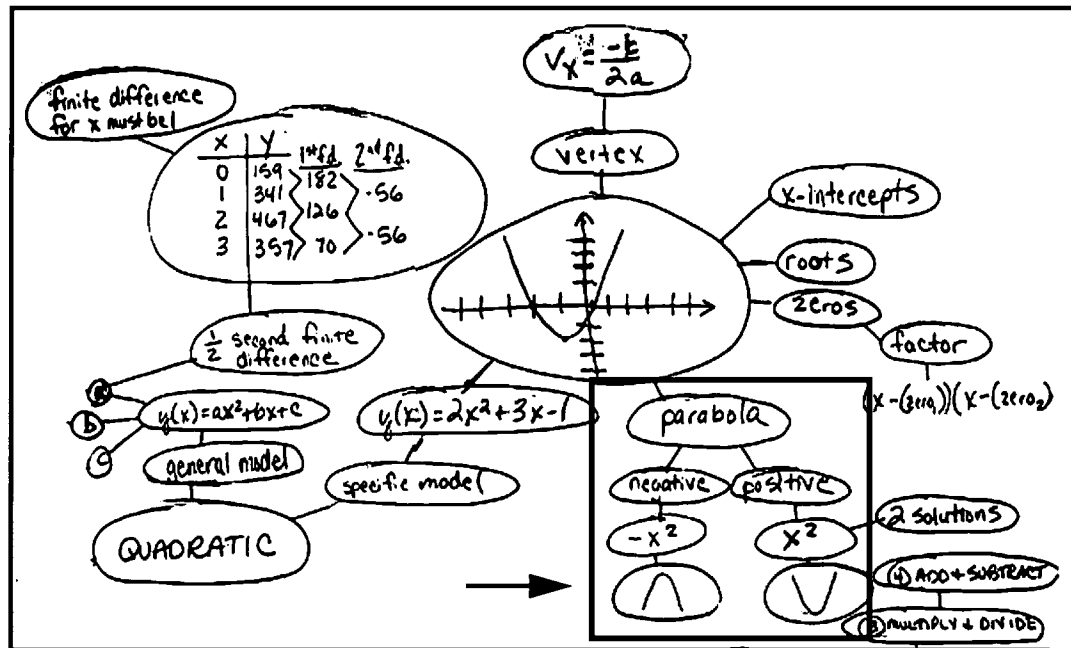 Vx = -b/2a
vertex
finite difference
for x must be 1
x y 1st fd. 2nd fd.
0 159
182
1 341 -56
126
2 467 -56
70
3 357
x-intercepts
roots
zeros
factor
(x-(zero1))(x-(zero2))
1/2 second finite
difference
a
b
c
y(x)=ax²+bx+c
general model
QUADRATIC
y(x)=2x²+3x-1
specific model
parabola
negative
positive
-x²
x²
2 solutions
④ ADD + SUBTRACT
③ MULTIPLY + DIVIDE